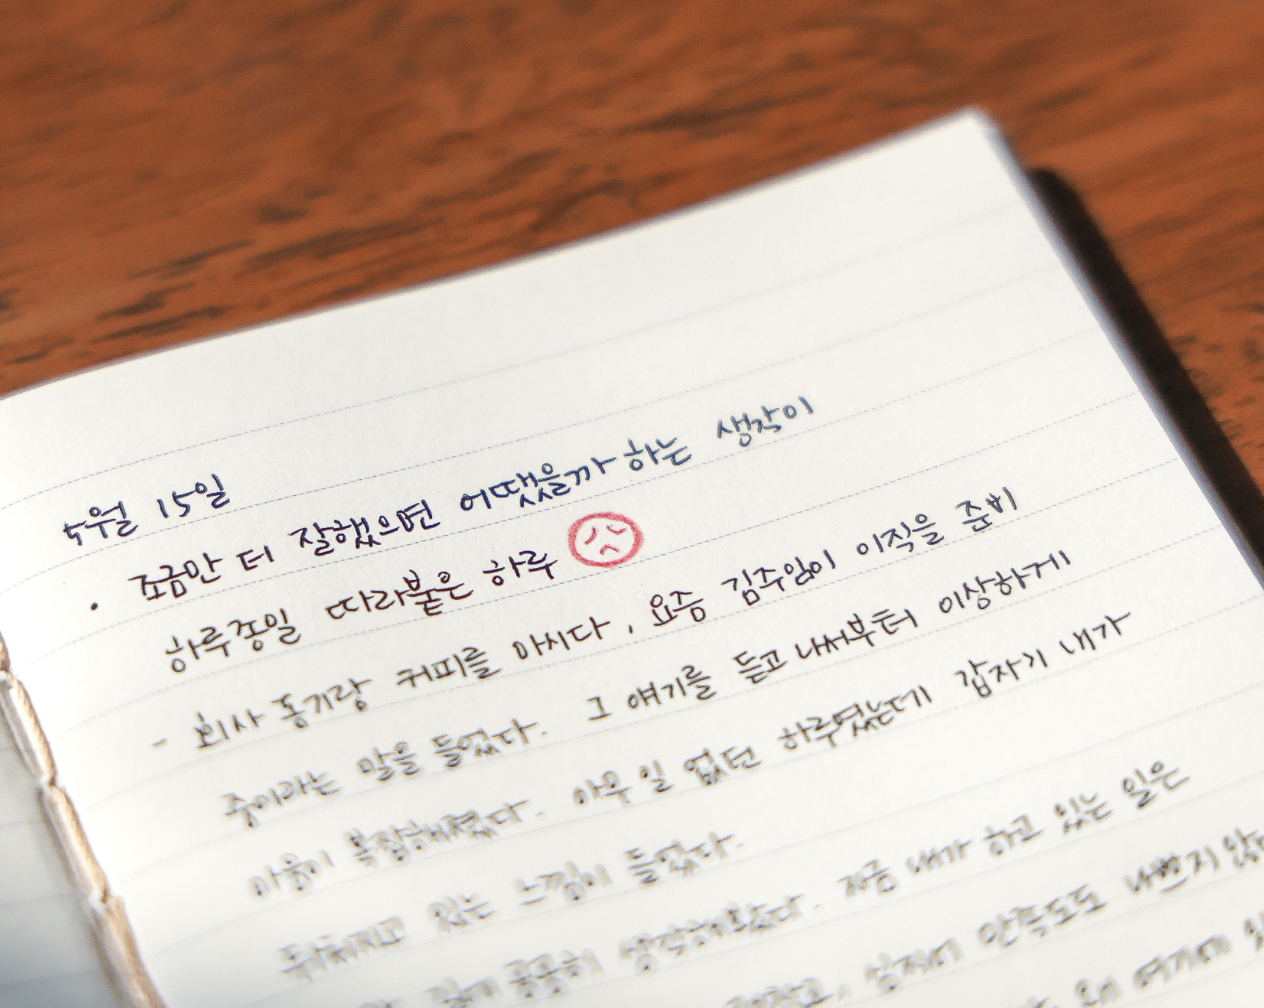 5월 15일
· 조금만 더 잘했으면 어땠을까 하는 생각이
하루종일 따라붙은 하루
- 회사 동기랑 커피를 마시다, 요즘 김주임이 이직을 준비
중이라는 말을 들었다. 그 얘기를 듣고 나서부터 이상하게
마음이 복잡해졌다. 아무 일 없던 하루였는데 갑자기 내가
뒤처지고 있는 느낌이 들었다.
곰곰히 생각해봤다. 지금 내가 하고 있는 일은
성적에 만족도도 나쁘지